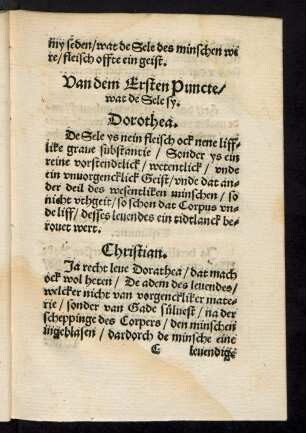 my seden / wat de Sele des minschen we
re / fleisch offte ein geist.
Van dem Ersten Puncte /
wat de Sele sy.
Dorothea.
De Sele ys nein fleisch ock nene liff⸗
like graue substantie / Sonder ys ein
reine vorstendelick / wetentlick / vnde
ein vnuorgencklick Geist / vnde dat an⸗
der deil des wesentliken minschen / so
nicht vthgeit / so schon dat Corpus vn⸗
de liff / desses leuendes ein tidtlanck be⸗
rouet wert.
Christian.
Ja recht leue Dorathea / dat mach
ock wol heten / De adem des leuendes /
welcker nicht van vorgenckliker mate⸗
rie / sonder van Gade süluest / na der
scheppinge des Corpers / den minschen
ingeblasen / dardorch de minsche eine
C leuendige